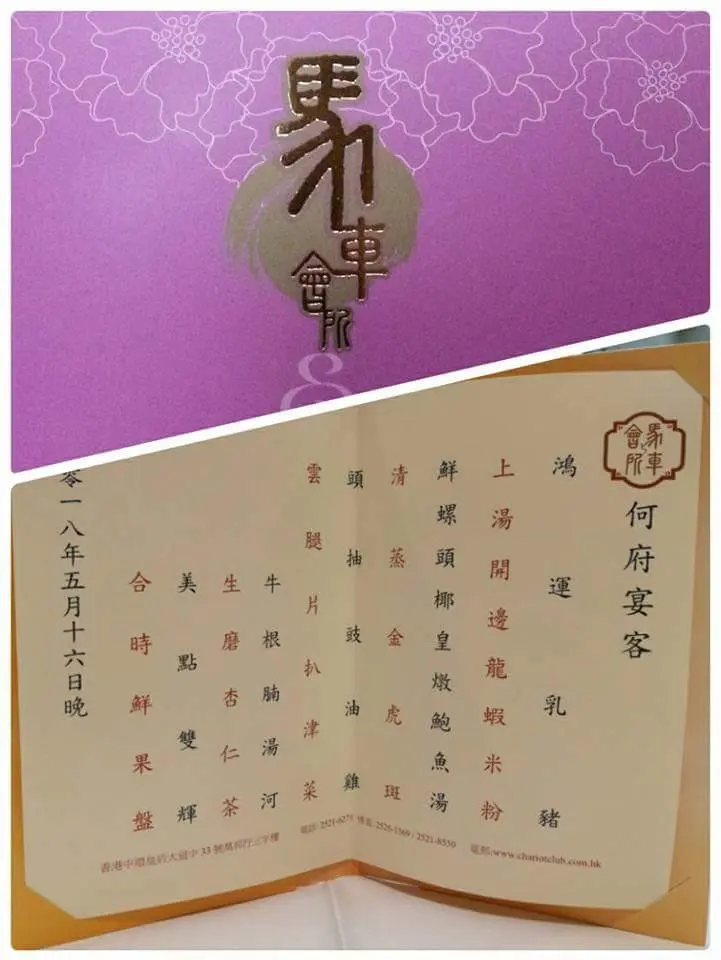 馬車會所
馬車會所
何府宴客
鴻運乳豬
上湯開邊龍蝦米粉
鮮螺頭椰皇燉鮑魚湯
清蒸金虎斑
頭抽豉油雞
雲腿片扒津菜
牛根腩湯河
生磨杏仁茶
美點雙輝
合時鮮果盤
零一八年五月十六日晚
香港中環皇后大道中33號萬邦行三字樓 電話: 傳真: 2525-1369 / 2521-8550 電郵:www.chariotclub.com.hk